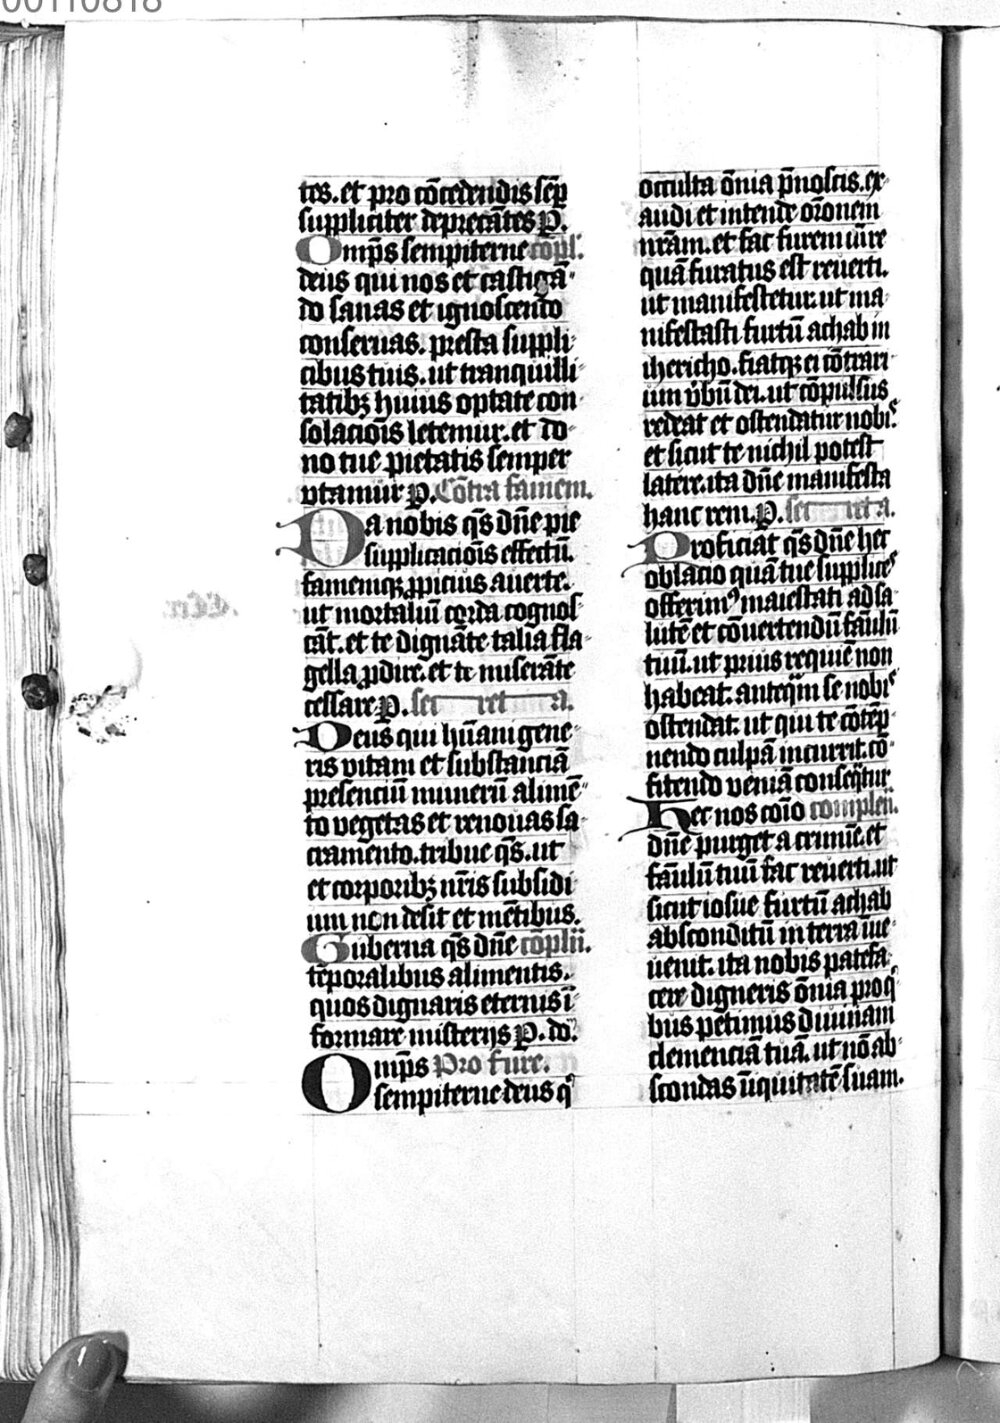 00110818
tes. et pro cōcedendis sēp
suppliciter deprecātes P.
Omps̄ sempiterne cōpl'.
deus qui nos et castigā-
do sanas et ignoscendo
conseruas. presta suppli-
cibus tuis. ut tranquilli-
tatibꝫ huius optate con-
solaciōis letemur. et do-
no tue pietatis semper
vtamur P. Cōtra famem.
Da nobis qs̄ dn̄e pie
supplicaciōis effectū.
famemqꝫ ꝓpicius auerte.
ut mortaliū corda cognos-
cāt. et te dignāte talia fla-
gella ꝓdire. et te miserāte
cessare P. secreta.
Deus qui hūani gene-
ris vitam et substanciā
presenciū munerū alimē-
to vegetas et renouas sa-
cramento. tribue qs̄. ut
et corporibꝫ nr̄is subsidi
um non desit et mētibus.
Guberna qs̄ dn̄e cōplīi.
tēporalibus alimentis.
quos dignaris eternis ī-
formare misterijs P. do.
Omps̄ Pro fure.
sempiterne deus qⁱ
occulta ōnia p̄noscis. ex-
audi et intende orōnem
nrām. et fac furem iūre
quā furatus est reuerti.
ut manifestetur. ut ma-
nifestasti furtū achab in
ihericho. fiatqꝫ ei cōtrari-
um v̄bū dei. ut cōpulsus
redeat et ostendatur nobis
et sicut te nichil potest
latere. ita dn̄e manifesta
hanc rem. P. secreta.
Proficiat qs̄ dn̄e hec
oblacio quā tue supplices
offerimꝰ maiestati ad sa-
lutē et cōuertendū fāulū
tuū. ut prius requiē non
habeat. anteq̄m se nobis
ostendat. ut qui te cōtēp-
nendo culpā incurrit. cō-
fitendo veniā conseq̄tur
Hec nos cōio complen̄.
dn̄e purget a crimīe. et
fāulū tuū fac reuerti. ut
sicut iosue furtū achab
absconditū in terra īue-
uenit. ita nobis patefa-
cere digneris ōnia pro qⁱ
bus petimus diuinam
clemenciā tuā. ut nō ab-
scondas īiquitatē suam.